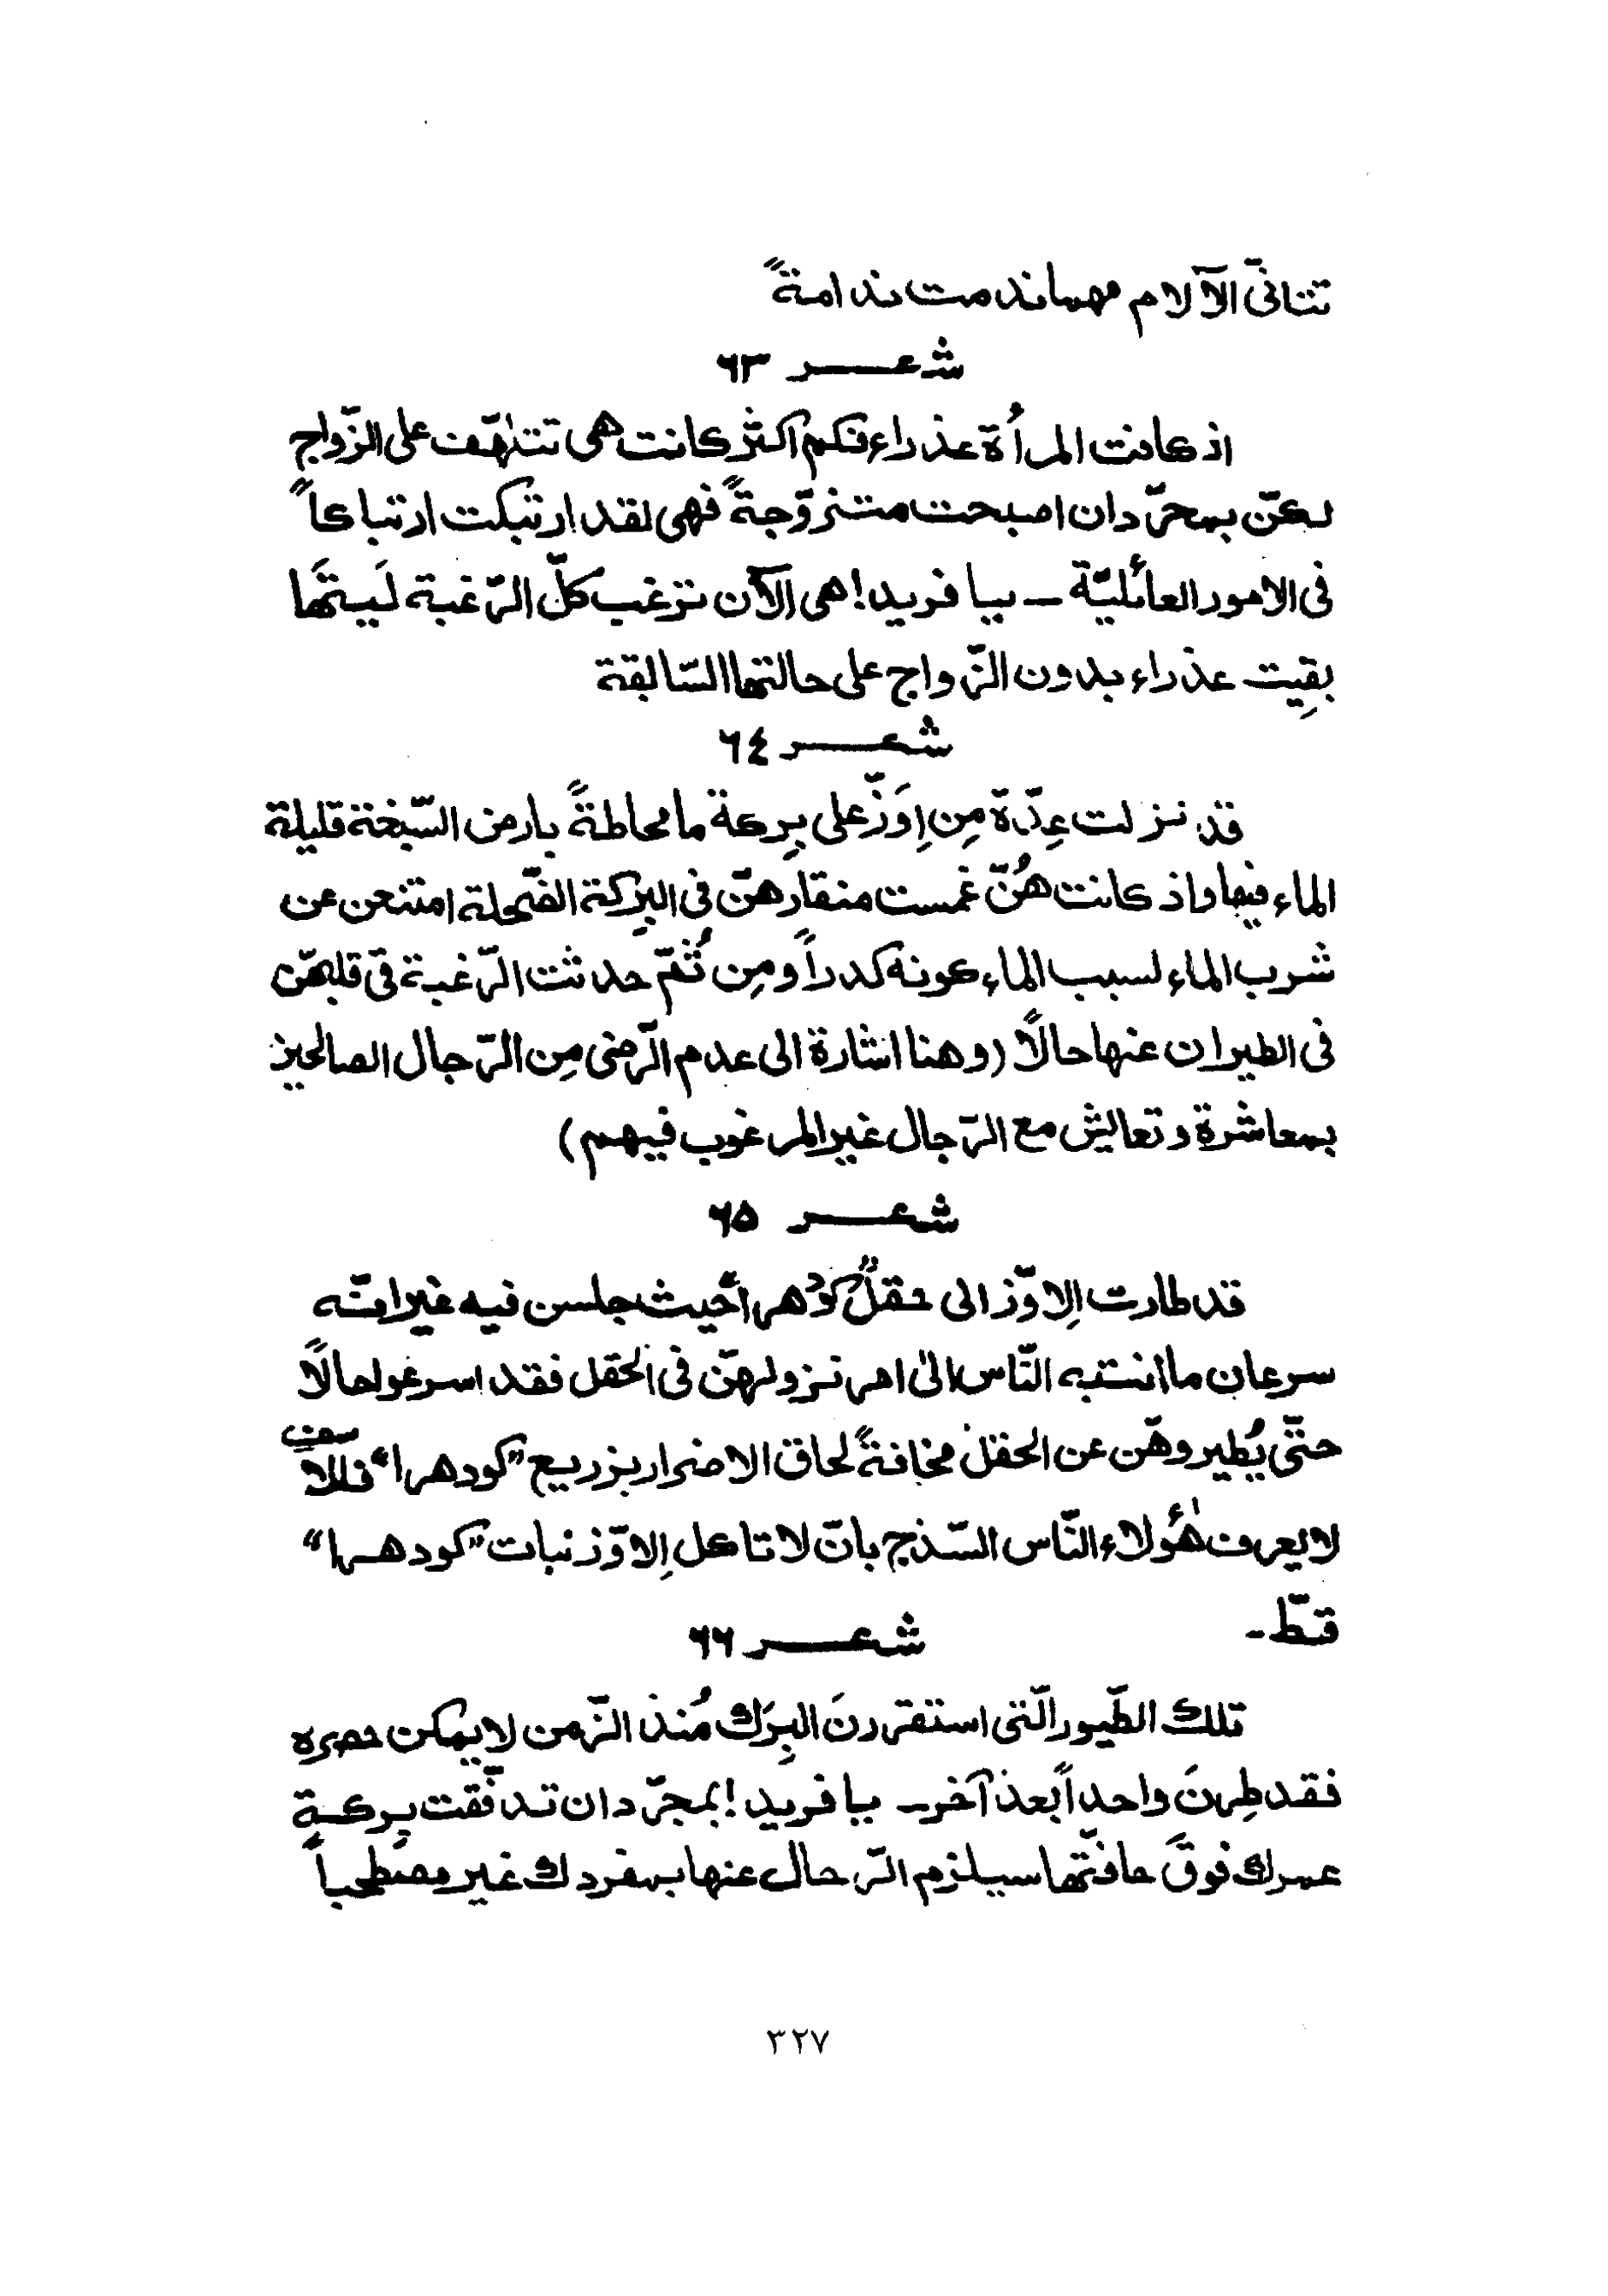 تتأتى الآلام مهما ندمت ندامةً
شعر ٦٣
اذ كانت المرأة عذراء فكم اكثر كانت هى تتلهّف على الزّواج
لكنّ بمجرّد ان اصبحت متزوّجةً فهى لقد ارتبكت ارتباكاً
فى الامور العائليّة ــ يا فريد! هى الآن ترغب كلّ الرّغبة لَيتَها
بقِيت عذراء بدون الزّواج على حالتها السّالبقة
شعر ٦٤
قد نزلت عِدّة مِن اِوَزّ على بِركة ما محاطةً بارض السّبخة قليلة
الماء فيها واذ كانت هُنّ غمست منقارهنّ فى البِركة الضّحلة امتنعن عن
شرب الماء لسبب الماء كونه كدراً ومِن ثُمّ حدثت الرّغبة فى قلبهنّ
فى الطيران عنها حالاً (وهنا اشارة الى عدم الرّضى مِن الرّجال الصالحين
بمعاشرة و تعاليش مع الرّجال غير المرغوب فيهم)
شعر ٦٥
قد طارت اِلاوّز الى حقلٍ كودهرا حيث جلسن فيه غير انّه
سرعان ما انتبه النّاس الىٰ امر نزولهنّ فى الحقل فقد اسرعوا حالاً
حتّى يُطيروهنّ عن الحقل مخافةً لحاق الاضرار بزريع "كودهرا" فللاسف
لا ليعرف هٰؤلاء النّاس السّذج بانّ لا تاكل اِلاوّز نبات "كودهرا"
قطّ ــ
شعر ٦٦
تلك الطّيور الّتى استقررنَ البِرَك مُنذ الزّمن لا يمكن حصره
فقد طِرنَ واحداً بعد آخر ــ يا فريد! بمجرّد ان تدفّقت بِركة
عمرك فوقَ حافتّها سيلزم الرّحال عنها بمفردك غير مصطحباً
٣٢٧